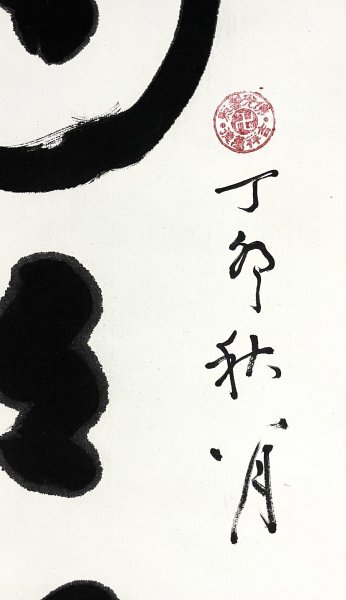 丁卯秋八月